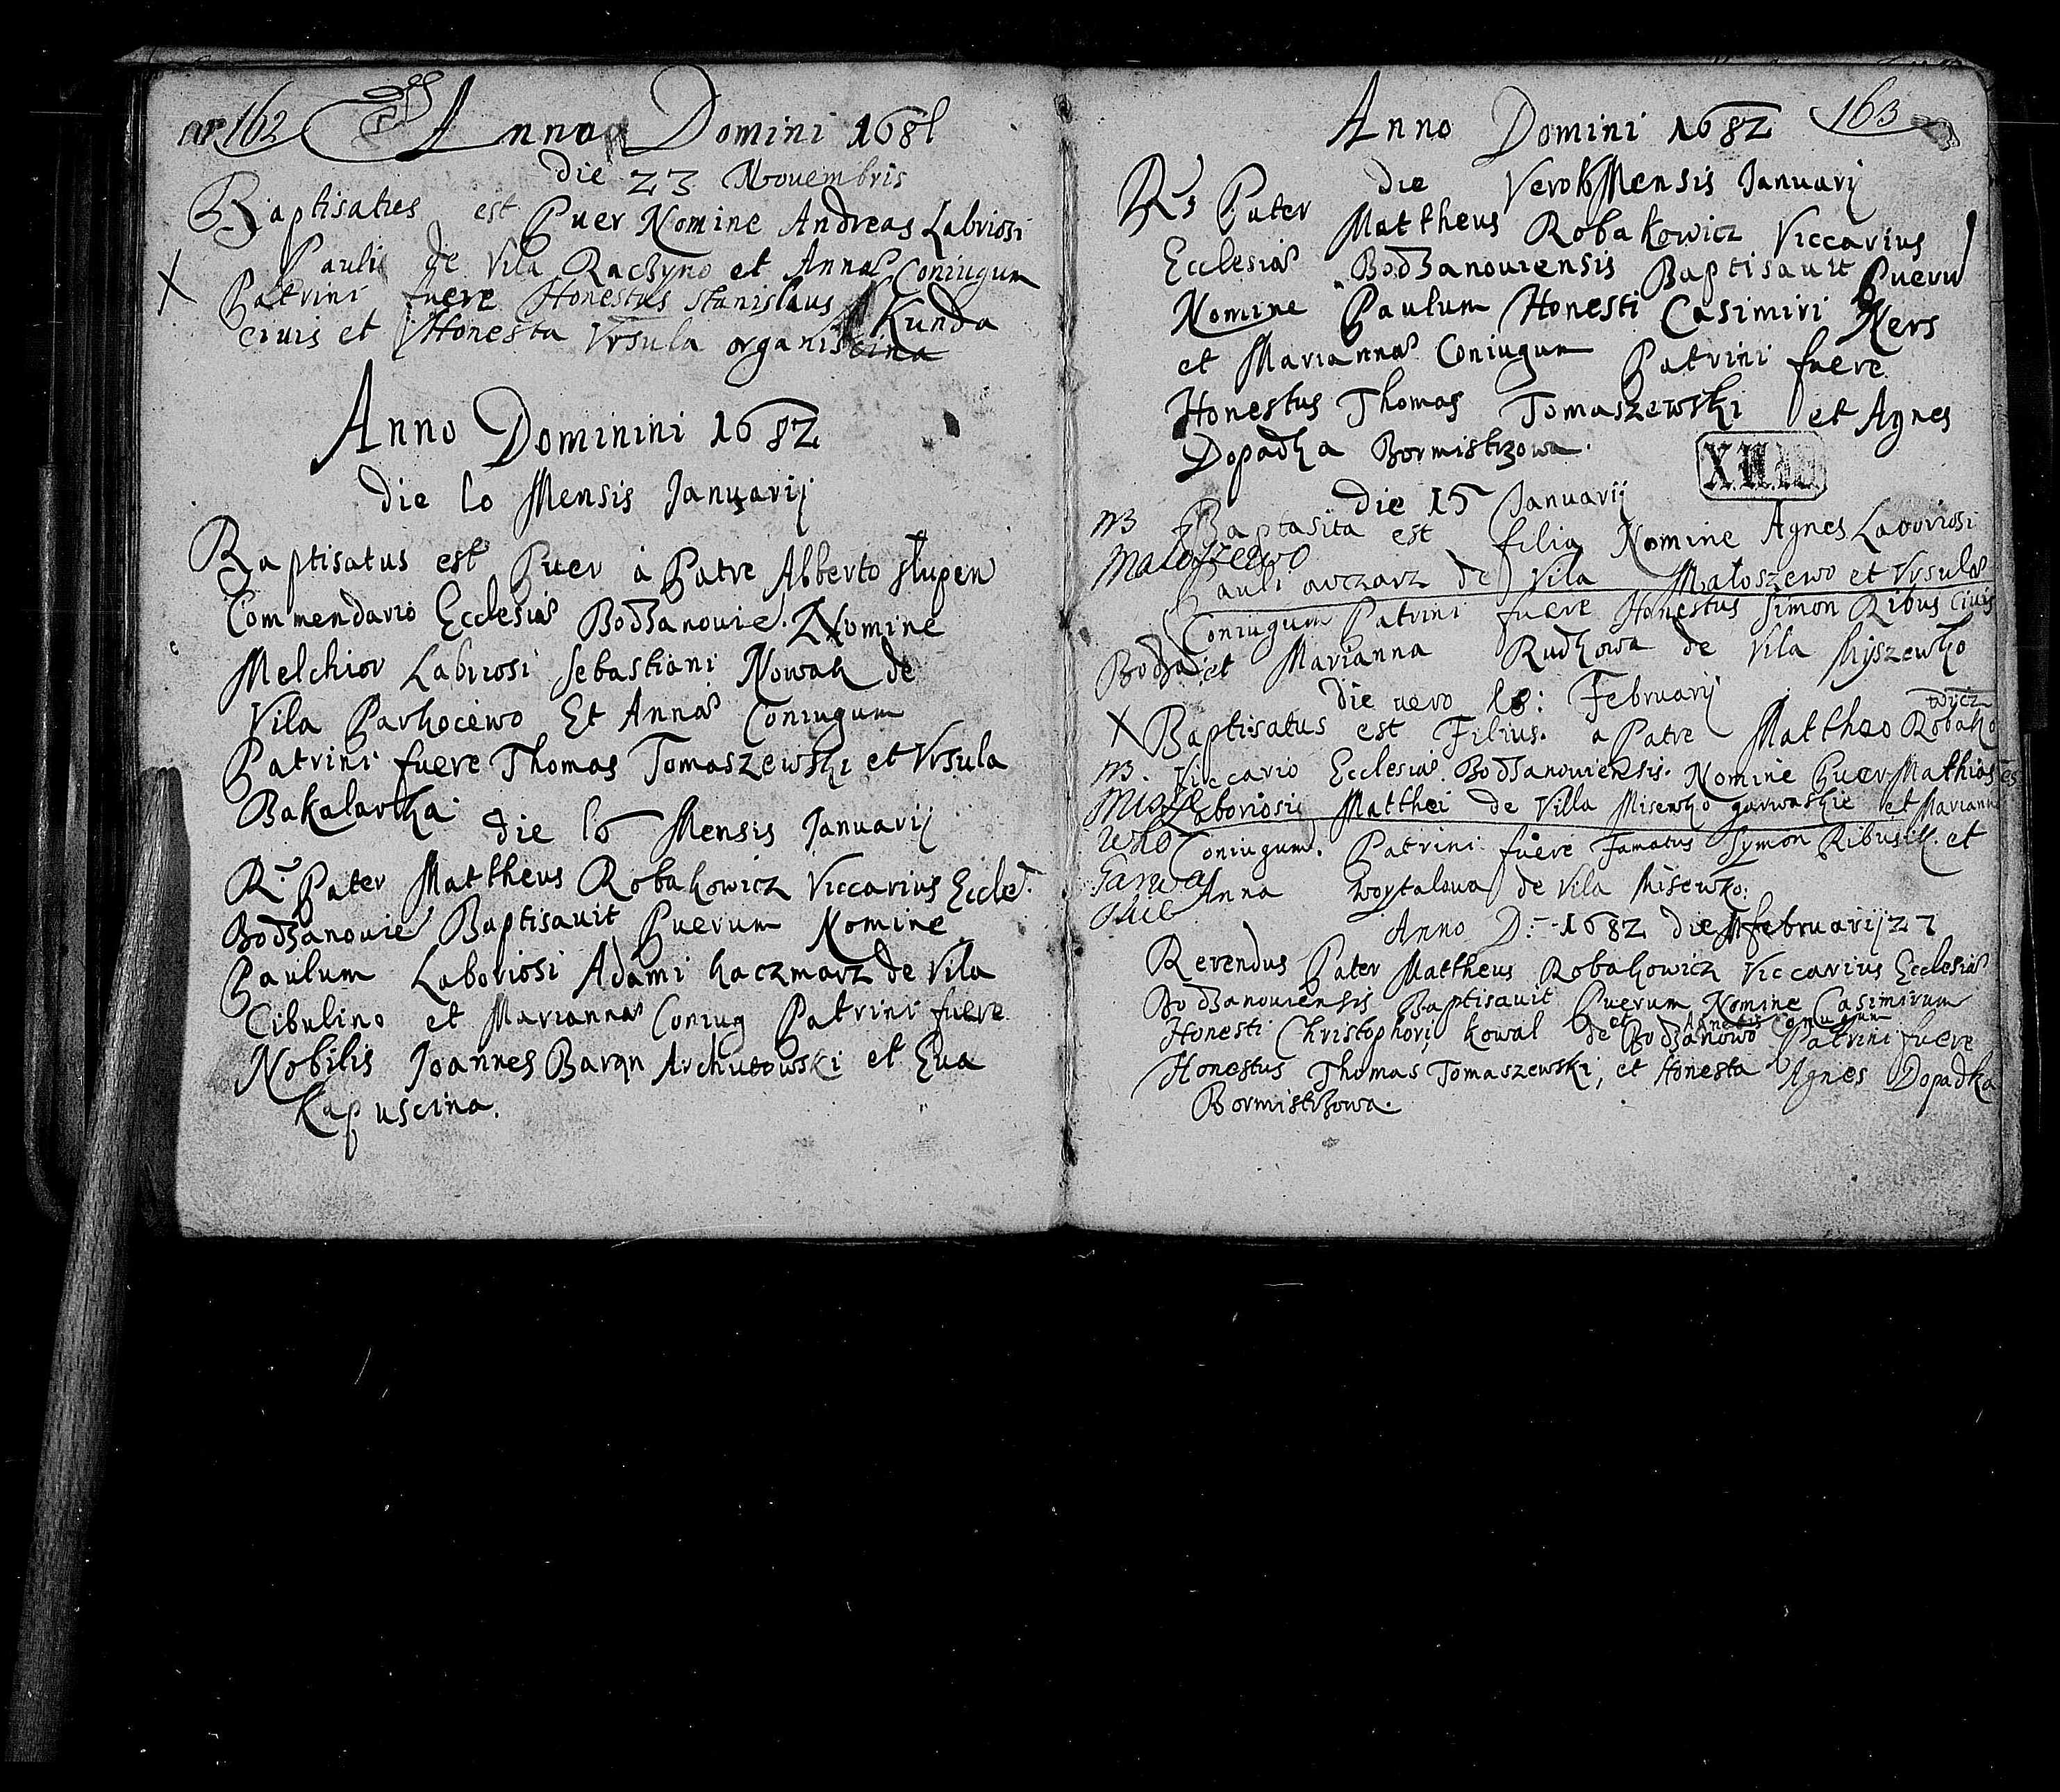 nr 162 Anno Domini 1681
die 23 Novembris
Baptisatus est Puer Nomine Andreas Labriosi
Pauli de Vila Raczyno et Annae Coniugum
Patrini fuere Honestus Stanislaus Kunda
civis et Honesta Vrsula organiscina
Anno Dominini 1682
die 10 Mensis Januarij
Baptisatus est Puer à Patre Alberto
Commendario Ecclesiae Bodzanovie. Nomine
Melchior Labriosi Sebastiani Nowak de
Vila Parkocewo Et Annae Coniugum
Patrini fuere Thomas Tomaszewski et Vrsula
Bakalarka
die 16 Mensis Januarij
R. Pater Mattheus Robakowicz Viccarius Eccle.
Bodzanovie Baptisavit Puerum Nomine
Paulum Laboriosi Adami kaczmarz de Vila
Cibulino et Mariannae Coniug Patrini fuere
Nobilis Joannes Baran Archutowski et Eva
Kapuscina.
Anno Domini 1682 163
die Vero Mensis Januarij
Rs Pater Mattheus Robakowicz Viccarius
Ecclesiae Bodzanoviensis Baptisavit Pueru
Nomine Paulum Honesti Casimiri Kers
et Mariannae Coniugum Patrini fuere
Honestus Thomas Tomaszewski et Agnes
Dopadka Bormistrzowa.
die 15 Januarij
NB Baptasita est filia Nomine Agnes Laboriosi
Maloszewo
Pauli owczarz de Vila Maloszewo et Vrsulae
Coniugum Patrini fuere Honestus Simon Ribus Civis
Bodza: et Marianna Rudkowa de Vila Myszewko
die vero 18: Februarij
X Baptisatus est Filius. a Patre Mattheo Robako
wycz
NB. Viccario Ecclesiae. Bodzanoviensis. Nomine Puer Mathias
Laboriosi Matthei de Villa Misewko garwaskie et Mariann
Coniugum. Patrini fuere Famatus Symon Ribusik. et
Garwa Anna Woytalowa de Vila Misewko:
skie
Anno D: 1682 die februarij 27
Rerendus Pater Mattheus Robakowicz Viccarius Ecclesiae
Bodzanoviensis Baptisavit Puerum Nomine Casimirum
et Agnetis Coniugum
Honesti Christophori kowal de Bodzanowo Patrini fuere
Honestus Thomas Tomaszewski, et Honesta Agnes Dopadka
Bormistrzowa.